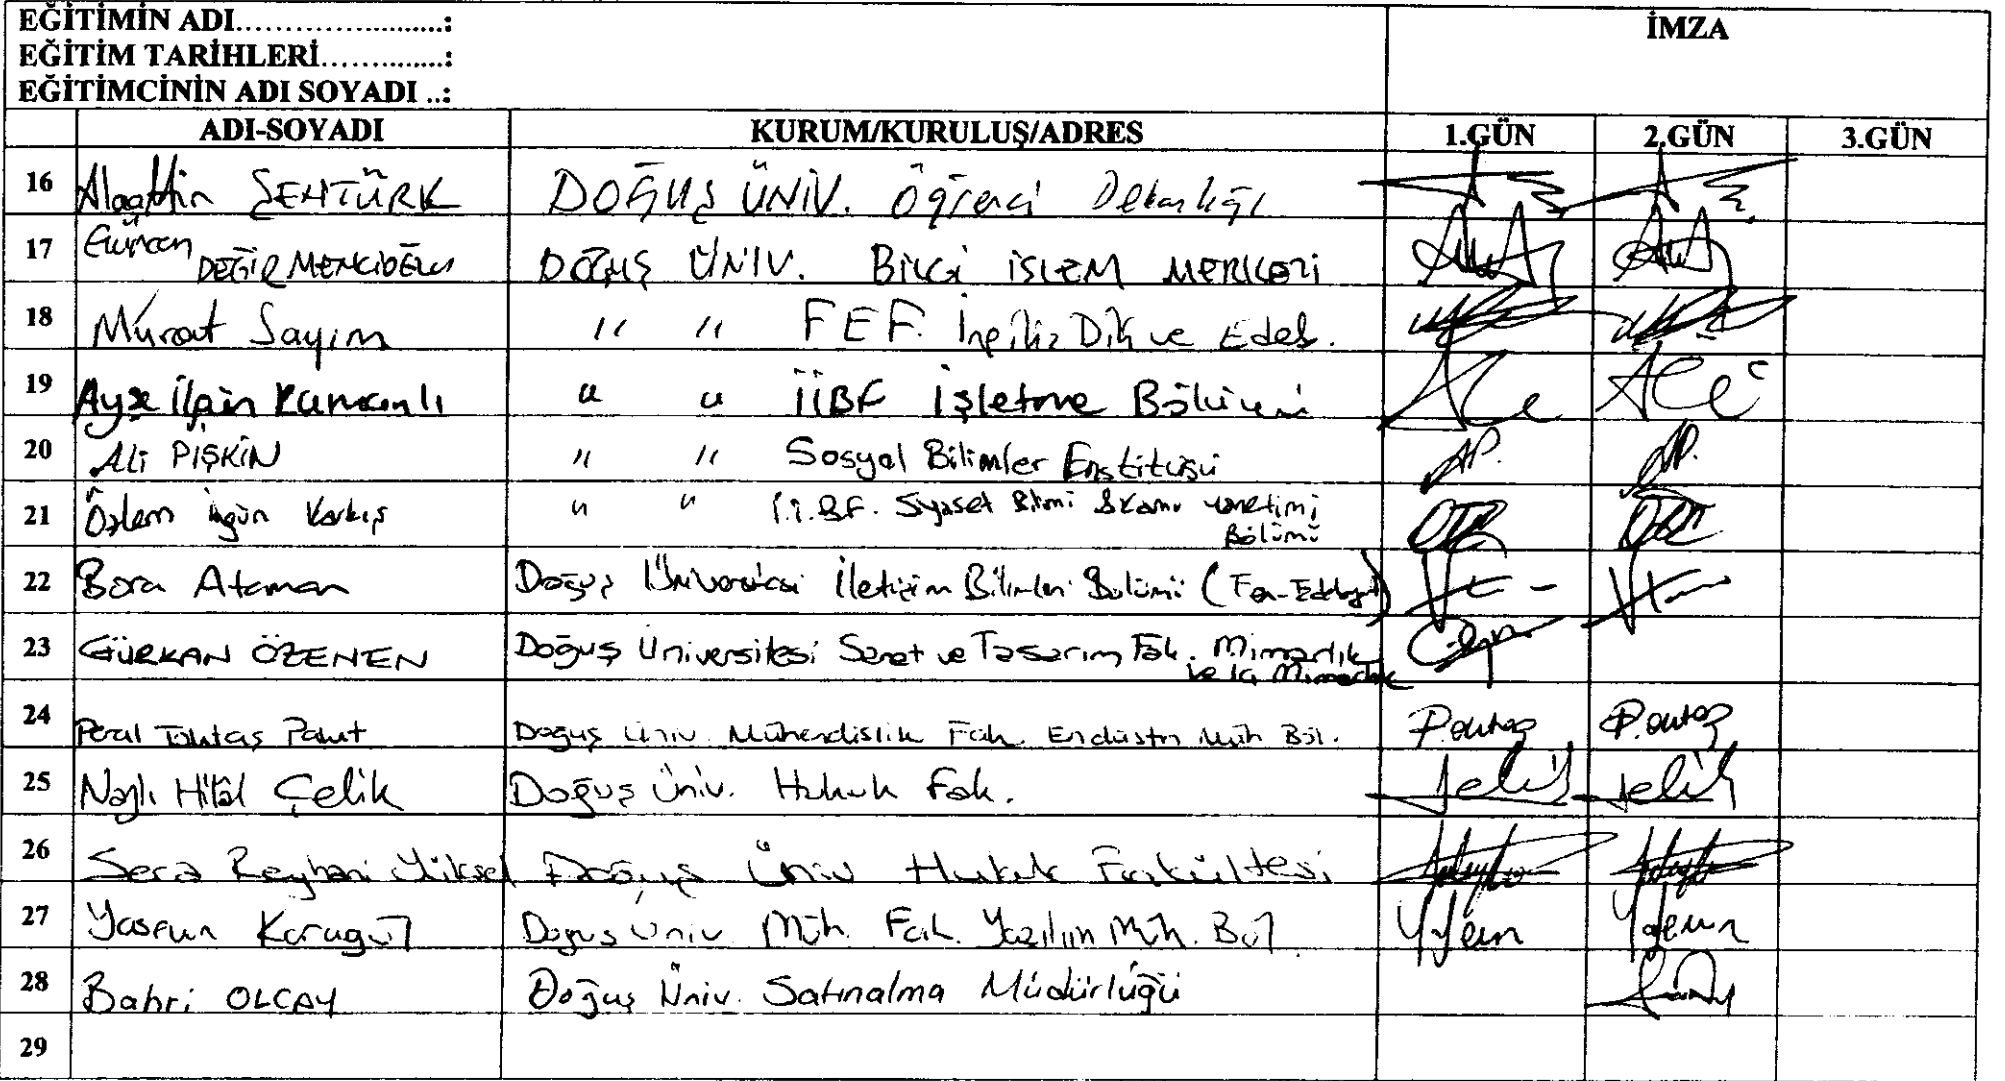 EĞİTİMİN ADI......................:
İMZA
EĞİTİM TARİHLERİ...............:
EĞİTİMCİNİN ADI SOYADI ..:
ADI-SOYADI KURUM/KURULUŞ/ADRES 1.GÜN 2.GÜN 3.GÜN
16 Alaattin ŞENTÜRK DOĞUŞ ÜNİV. Öğrenci Dekanlığı
17 Gürcan DEĞİRMENCİOĞLU DOĞUŞ ÜNİV. BİLGİ İŞLEM MERKEZİ
18 Murat Sayım " " FEF. İngiliz Dili ve Edeb.
19 Ayşe Ilgın Kamanlı " " İİBF İşletme Bölümü
20 Ali PİŞKİN " " Sosyal Bilimler Enstitüsü
21 Özlem İngün Karkış " " İ.İ.B.F. Siyaset Bilimi & Kamu yönetimi
Bölümü
22 Bora Ataman Doğuş Üniversitesi İletişim Bilimleri Bölümü (Fen-Edebiyat)
23 GÜRKAN ÖZENEN Doğuş Üniversitesi Sanat ve Tasarım Fak. Mimarlık
ve İç Mimarlık
24 Peral Toktaş Palut Doğuş Üniv. Mühendislik Fak. Endüstri Müh Böl.
25 Nazlı Hilâl Çelik Doğuş Üniv. Hukuk Fak. Çelik Çelik
26 Sera Reyhani Yüksel Doğuş Üniv Hukuk Fakültesi
27 Yasemin Karagül Doğuş Univ. Müh. Fak. Yazılım Müh. Böl
28 Bahri OLCAY Doğuş Üniv. Satınalma Müdürlüğü
29